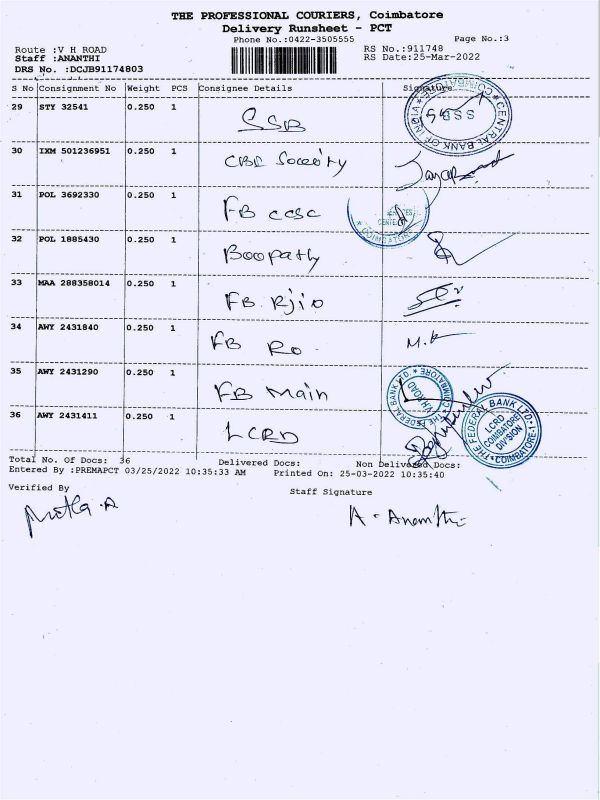 THE PROFESSIONAL COURIERS, Coimbatore
Delivery Runsheet - PCT
Phone No.:0422-3505555 Page No.:3
Route :V H ROAD RS No.:911748
Staff :ANANTHI RS Date:25-Mar-2022
DRS No. :DCJB91174803
S No Consignment No Weight PCS Consignee Details Signature
29 STY 32541 0.250 1 SSB
CENTRAL BANK OF INDIA COIMBATORE SSB
30 IXM 501236951 0.250 1 CBE Society
31 POL 3692330 0.250 1 FB ccsc
COIMBATORE
32 POL 1885430 0.250 1 Boopathy
33 MAA 288358014 0.250 1 FB Rjio
34 AWY 2431840 0.250 1 FB Ro
35 AWY 2431290 0.250 1 FB Main
THE FEDERAL BANK LTD. COIMBATORE V.H.ROAD
36 AWY 2431411 0.250 1 LCRD
THE FEDERAL BANK LTD. COIMBATORE
LCRD
COIMBATORE
DIVISION
Total No. Of Docs: 36 Delivered Docs: Non Delivered Docs:
Entered By :PREMAPCT 03/25/2022 10:35:33 AM Printed On: 25-03-2022 10:35:40
Verified By Staff Signature
A. Ananthi